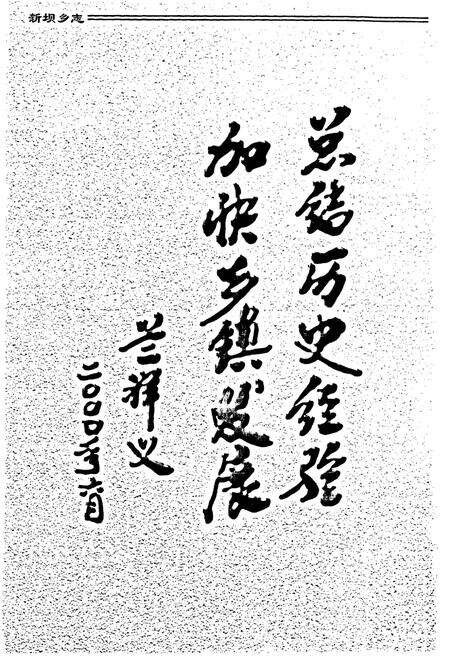 新坝乡志
总结历史经验
加快乡镇发展
兰祥义
二〇〇〇年六月